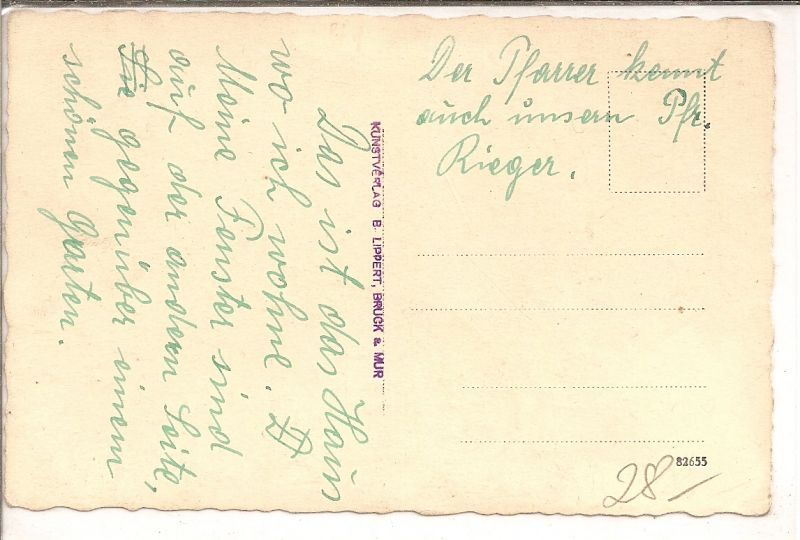 Das ist das Haus
wo ich wohne.
Meine Fenster sind
auf der andern Seite,
gegenüber einem
schönen Garten.
KUNSTVERLAG B. LIPPERT, BRUCK a. MUR
Der Pfarrer kennt
auch unsern Pfr.
Rieger.
82655
28-